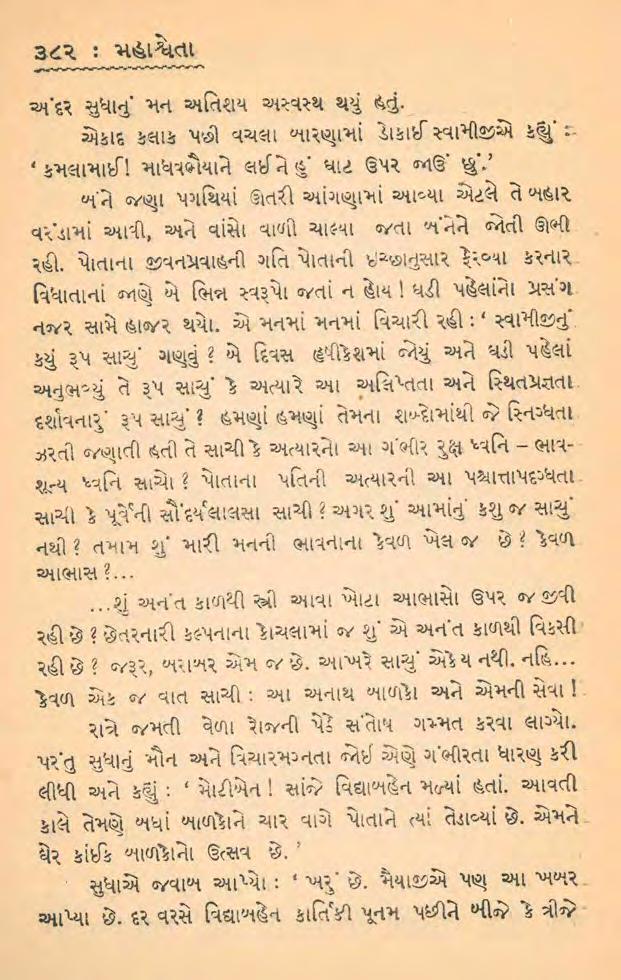 ૩૮૨ : મહાશ્વેતા
અંદર સુધાનું મન અતિશય અસ્વસ્થ થયું હતું.
એકાદ કલાક પછી વચલા બારણામાં ડોકાઈ સ્વામીજીએ કહ્યું :
‘ કમલામાઈ! માધવભૈયાને લઈને હું ઘાટ ઉપર જાઉં છું.’
બંને જણા પગથિયાં ઊતરી આંગણામાં આવ્યા એટલે તે બહાર
વરંડામાં આવી, અને વાંસો વાળી ચાલ્યા જતા બંનેને જોતી ઊભી
રહી. પોતાના જીવનપ્રવાહની ગતિ પોતાની ઇચ્છાનુસાર ફેરવ્યા કરનાર
વિધાતાનાં જાણે બે ભિન્ન સ્વરૂપો જતાં ન હોય! ઘડી પહેલાંનો પ્રસંગ
નજર સામે હાજર થયો. એ મનમાં મનમાં વિચારી રહી : ‘ સ્વામીજીનું
કયું રૂપ સાચું ગણવું ? બે દિવસ હૃષીકેશમાં જોયું અને ઘડી પહેલાં
અનુભવ્યું તે રૂપ સાચું કે અત્યારે આ અલિપ્તતા અને સ્થિતપ્રજ્ઞતા
દર્શાવનારું રૂપ સાચું ? હમણાં હમણાં તેમના શબ્દોમાંથી જે સ્નિગ્ધતા
ઝરતી જણાતી હતી તે સાચી કે અત્યારનો આ ગંભીર રુક્ષ ધ્વનિ – ભાવ-
શૂન્ય ધ્વનિ સાચો ? પોતાના પતિની અત્યારની આ પશ્ચાત્તાપદગ્ધતા
સાચી કે પૂર્વેની સૌંદર્યલાલસા સાચી ? અગર શું આમાંનું કશુ જ સાચું
નથી ? તમામ શું મારી મનની ભાવનાના કેવળ ખેલ જ છે? કેવળ
આભાસ ?...
...શું અનંત કાળથી સ્ત્રી આવા ખોટા આભાસો ઉપર જ જીવી
રહી છે ? છેતરનારી કલ્પનાના કોચલામાં જ શું એ અનંત કાળથી વિકસી
રહી છે ? જરૂર, બરાબર એમ જ છે. આખરે સાચું એકેય નથી. નહિ...
કેવળ એક જ વાત સાચી : આ અનાથ બાળકો અને એમની સેવા !
રાત્રે જમતી વેળા રોજની પેઠે સંતોષ ગમ્મત કરવા લાગ્યો.
પરંતુ સુધાનું મૌન અને વિચારમગ્નતા જોઈ એણે ગંભીરતા ધારણ કરી
લીધી અને કહ્યું : ‘ મોટીબેન ! સાંજે વિદ્યાબહેન મળ્યાં હતાં. આવતી
કાલે તેમણે બધાં બાળકોને ચાર વાગે પોતાને ત્યાં તેડાવ્યાં છે. એમને
ઘેર કાંઈક બાળકોનો ઉત્સવ છે. ’
સુધાએ જવાબ આપ્યો : ‘ ખરું છે. મૈયાજીએ પણ આ ખબર
આપ્યા છે. દર વરસે વિદ્યાબહેન કાર્તિકી પૂનમ પછીને બીજે કે ત્રીજે